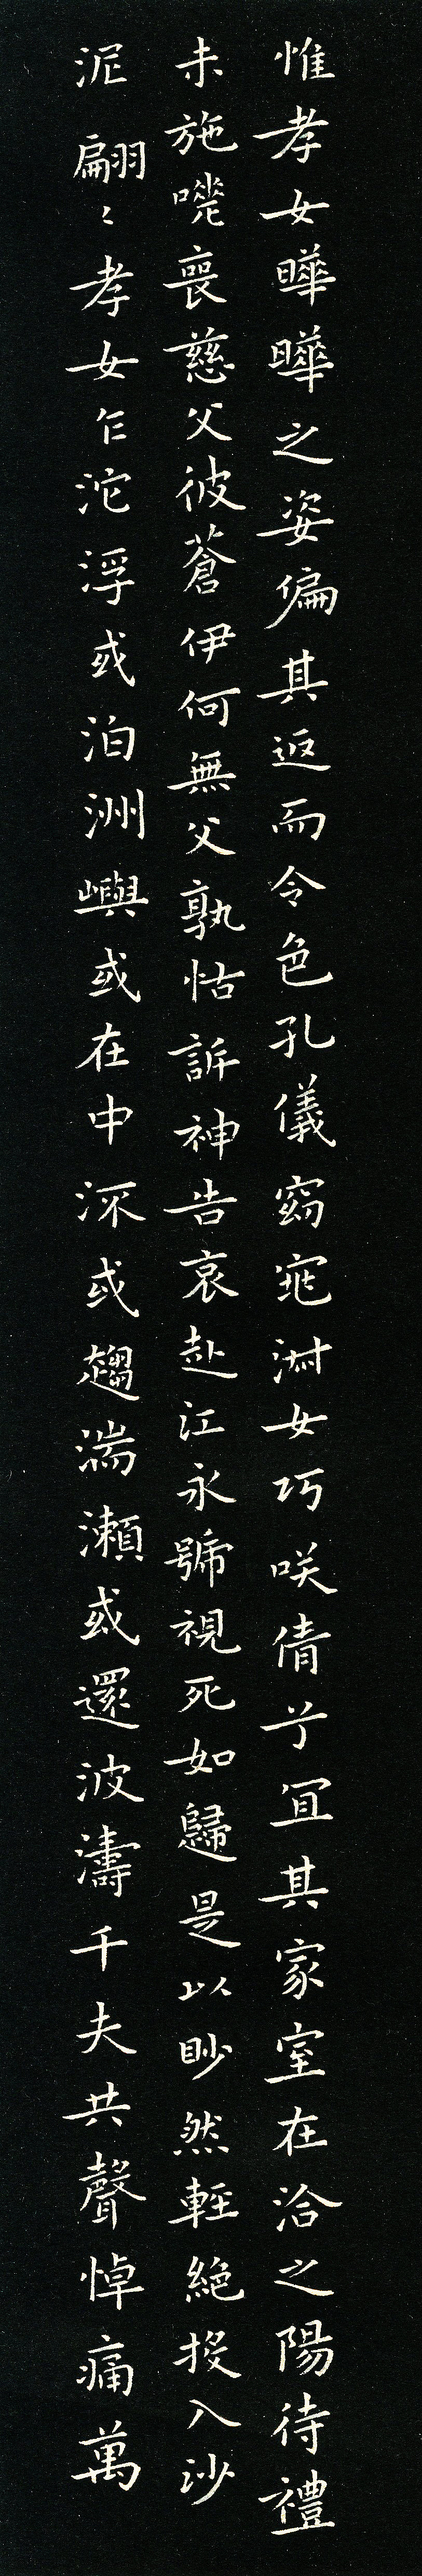 惟孝女曄曄之姿偏其返而令色孔儀窈窕淑女巧咲倩兮宜其家室在洽之陽待禮
未施嘡喪慈父彼蒼伊何無父孰怙訴神告哀赴江永號視死如歸是以眇然輕絕投入沙
泥翩〻孝女乍沱浮或泊洲嶼或在中流或趨湍瀨或還波濤千夫共聲悼痛萬